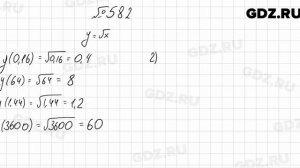 GDZ.RU
№582
y=√x
y(0,16)=√0,16=0,4
2)
y(64)=√64=8
y(1,44)=√1,44=1,2
(3600)=√3600=60
GDZ.RU